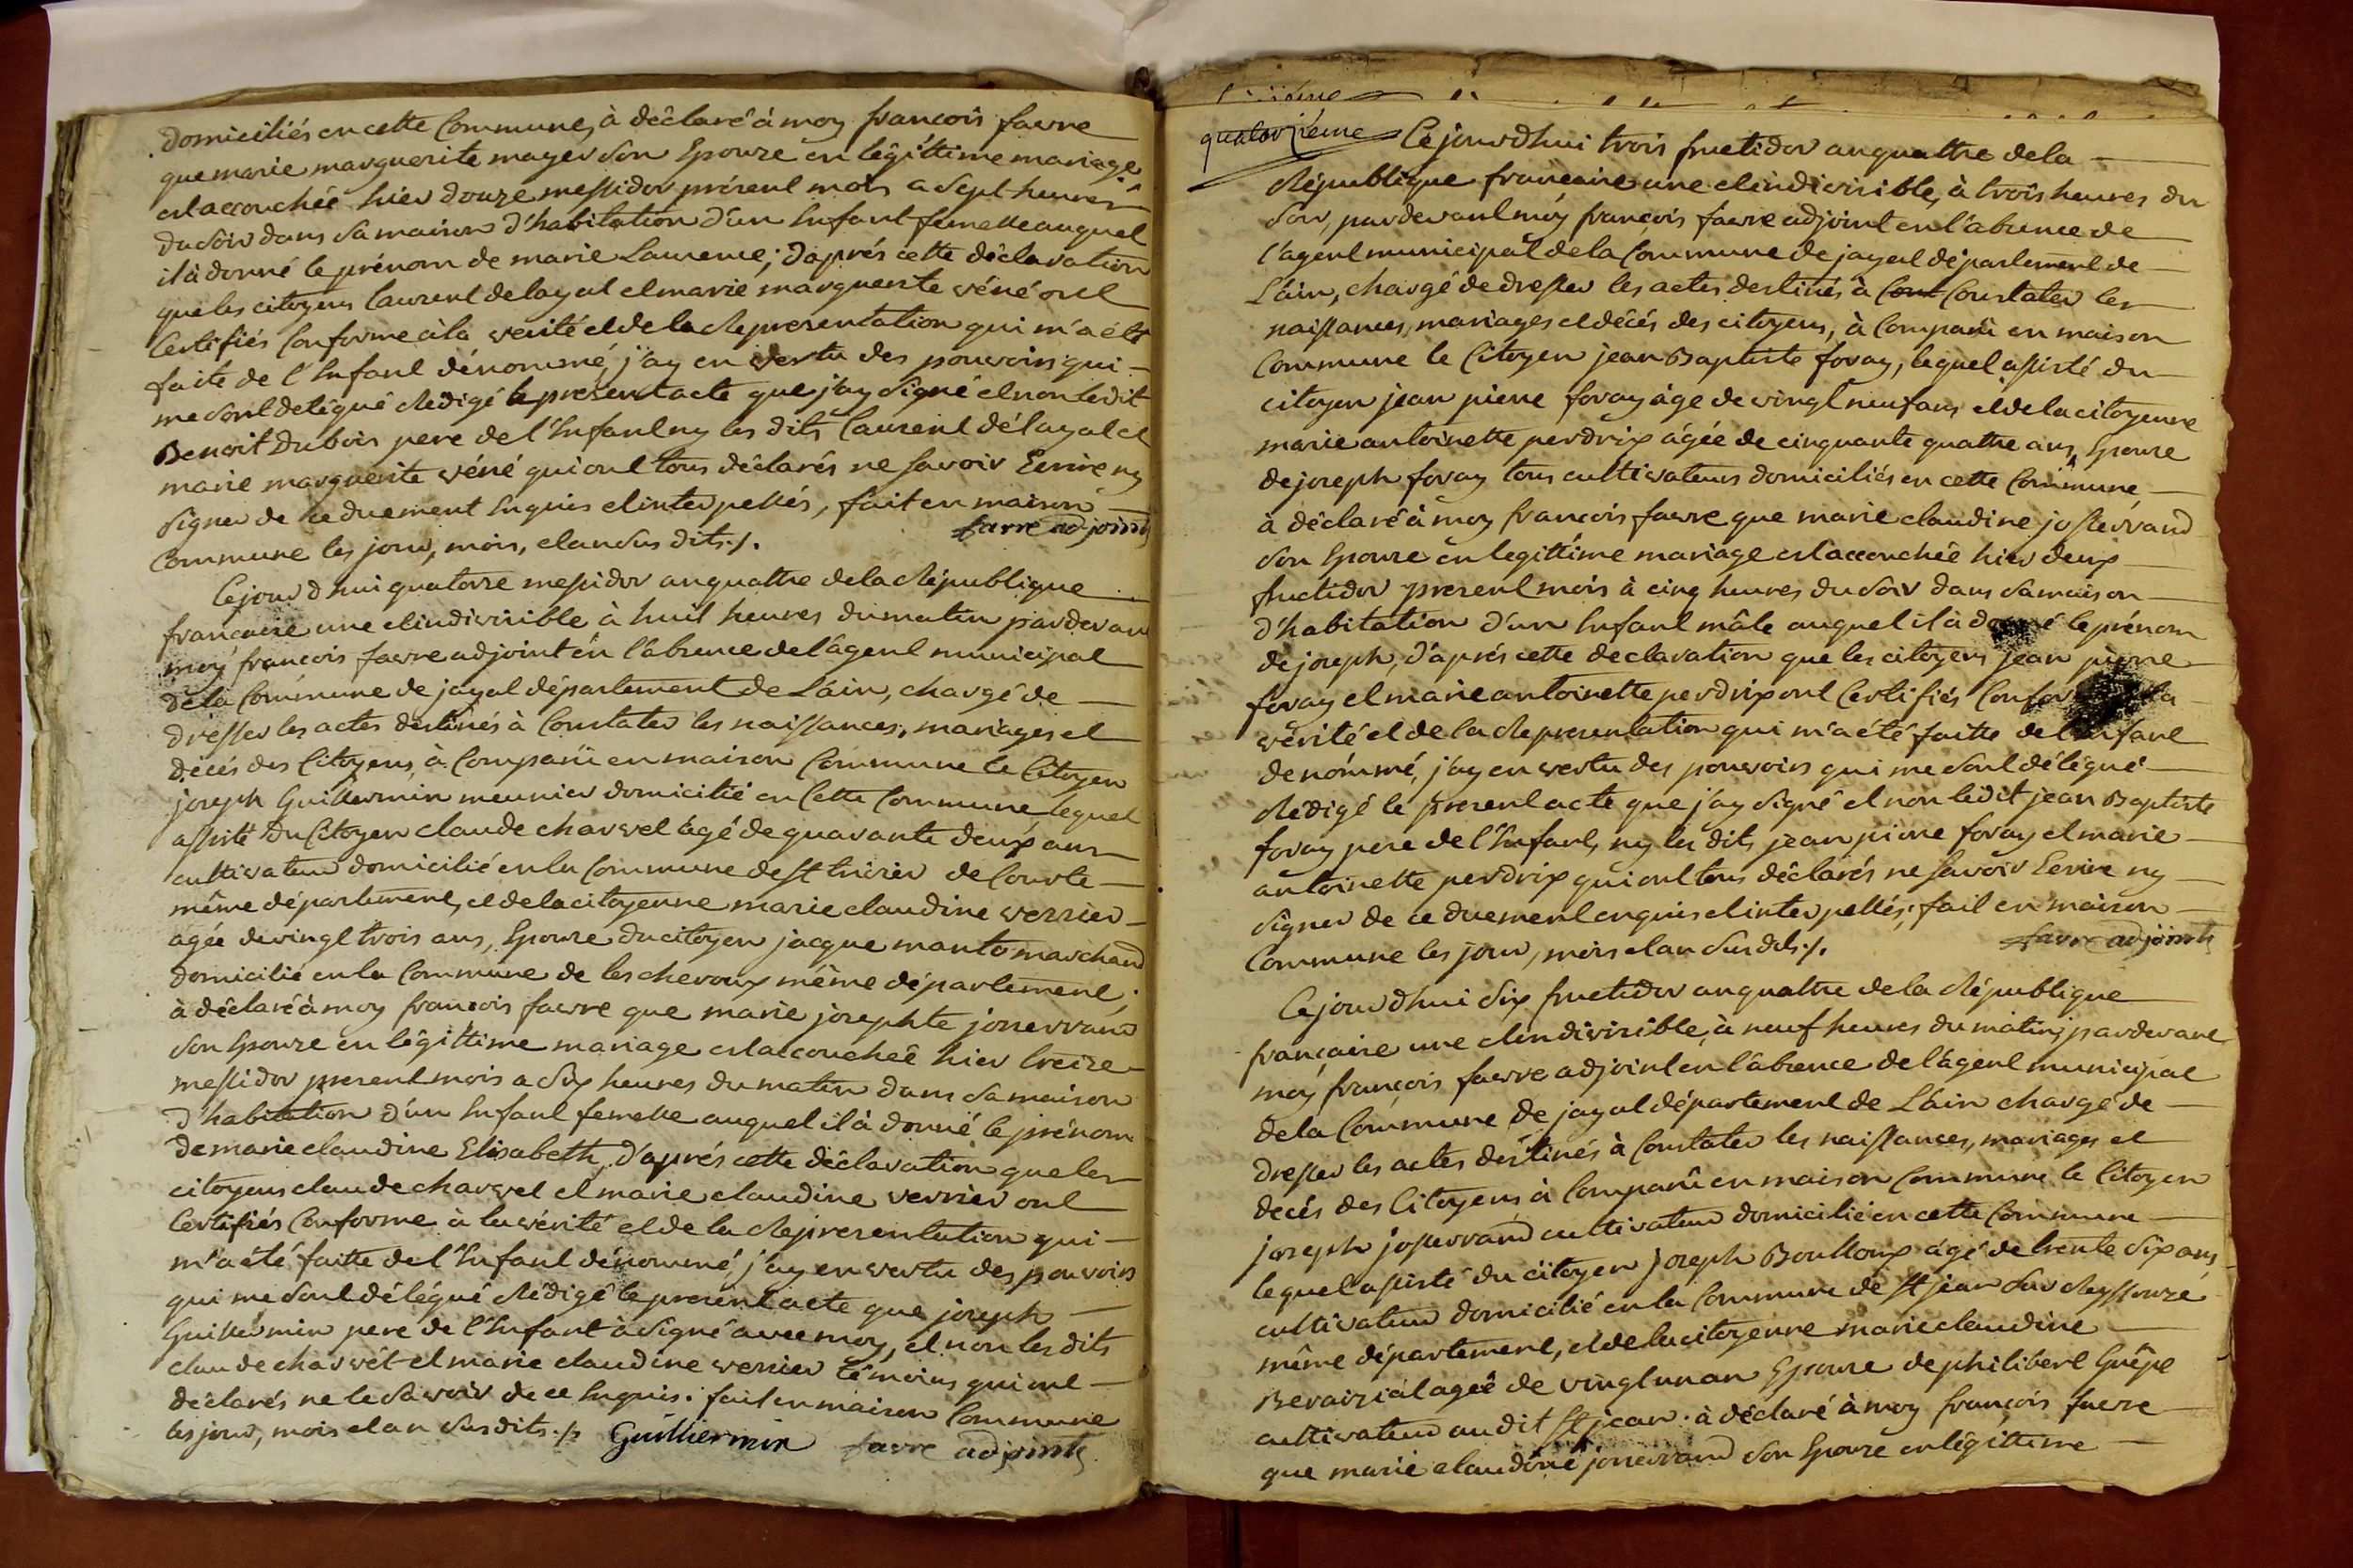 domiciliés en cette Commune, à déclaré à moy francois favre
que marie marguerite mayer son Epouze en légittime mariage,
est accouchée hier douze messidor présent mois a sept heures
du soir dans sa maison d'habitation d'un Enfant femelle auquel
il à donné le prénom de marie Laurence; d'aprés cette déclaration
que les citoyens Laurent delayat et marie marguerite véné ont
Certifiés Conforme à la verité et de la Representation qui m'a été
faite de l'Enfant dénommé, j'ay en vertu des pouvoirs qui
me sont delégué Rédigé le present acte que j'ay signé et non ledit
Benoit Dubois pere de l'Enfant ny les dits Laurent délayat et
marie marguerite véné qui ont tous déclarés ne savoir Ecrire ny
signer de ce duement Enquis et interpellés, fait en maison
Commune les jour, mois, et an sus dits ./. favre adjoint
Cejourd'hui quatorze messidor an quattre de la République
francaise une et indivisible à huit heures du matin pardevant
moy françois favre adjoint en l'absence de l'agent municipal
de la Commune de jayat département de L'ain, chargé de
dresser les actes destinés à Constater les naissances, mariages et
décés des Citoyens, à Comparû en maison Commune le Citoyen
joseph Guillermin meunier domicilié en Cette Commune lequel
assisté du Citoyen claude charvet agé de quarante deux ans
cultivateur domicilié en la Commune de St trivier de Courte
même département, et de la citoyenne marie claudine verrier
agée de vingt trois ans, Epouze du citoyen jacque manto marchand
domicilié en la Commune de les cheroux même département,
à déclaré à moy francois favre que marie josephte josserrand
son Epouze en légittime mariage est accouchée hier treize
messidor present mois a six heures du matin dans sa maison
d'habitation d'un Enfant femelle auquel il à donné le prénom
de marie claudine Elisabeth, d'aprés cette déclaration que les
citoyens claude charvet et marie claudine verrier ont
Certifiés Conforme à la vérité et de la Representation qui
m'a été faitte de l'Enfant dénommé, j'ay en vertu des pouvoirs
qui me sont délégué Rédigé le present acte que joseph
Guillermin pere de l'Enfant à signé avec moy, et non les dits
claude charvet et marie claudine verrier témoins qui ont
déclarés ne le savoir de ce Enquis. fait en maison Commune
les jour, mois et an sus dits ./. Guilliermin favre adjoint
quatorzième Cejourd'hui trois fructidor an quattre de la
République francaise une et indivisible, à trois heures du
soir, pardevant moy françois favre adjoint en l'absence de
l'agent municipal de la Commune de jayat département de
L'ain, chargé de dresser les actes destinés à Cont Constater les
naissances, mariages et décés des citoyens, à Comparû en maison
Commune le Citoyen jean Baptiste foray, lequel assisté du
citoyen jean pierre foray âge de vingt neuf ans et de la citoyenne
marie antoinette perdrix âgée de cinquante quattre ans, Epouze
de joseph foray tous cultivateurs domiciliés en cette Commune
à déclaré à moy francois favre que marie claudine josserrand
son Epouze en legittime mariage est accouchée hier deux
fructidor present mois à cinq heures du soir dans sa maison
d'habitation d'un Enfant mâle auquel il à donné le prénom
de joseph, d'aprés cette declaration que les citoyens jean pierre
foray et marie antoinette perdrix ont Certifiés Conforme à la
vérité et de la Representation qui m'a été faitte de l'Enfant
denommé, j'ay en vertu des pouvoirs qui me sont délégué
Rédigé le present acte que j'ay signé et non ledit jean Baptiste
foray pere de l'Enfant, ny les dits jean pierre foray et marie
antoinette perdrix qui ont tous déclarés ne savoir Ecrire ny
signer de ce duement enquis et interpellés; fait en maison
Commune les jour, mois et an sus dits ./. favre adjoint
Cejourd'hui six fructidor an quattre de la République
françaire une et indivisible, à neuf heures du matin, pardevant
moy françois favre adjoint en l'absence de l'agent municipal
de la Commune de jayat département de L'ain chargé de
dresser les actes destinés à Constater les naissances, mariages et
decés des Citoyens à Comparû en maison Commune le Citoyen
joseph josserrand cultivateur domicilié en cette Commune
lequel assisté du citoyen joseph Boulloux âgé de trente six ans,
cultivateur domicilié en la Commune de St jean sur Reyssouze
même département, et de la citoyenne marie claudine
Bevairiat agée de vingt un an Epouze de philibert Guêpe
cultivateur au dit St jean. à déclaré à moy françois favre
que marie claudine josserrand son Epouze en légittime